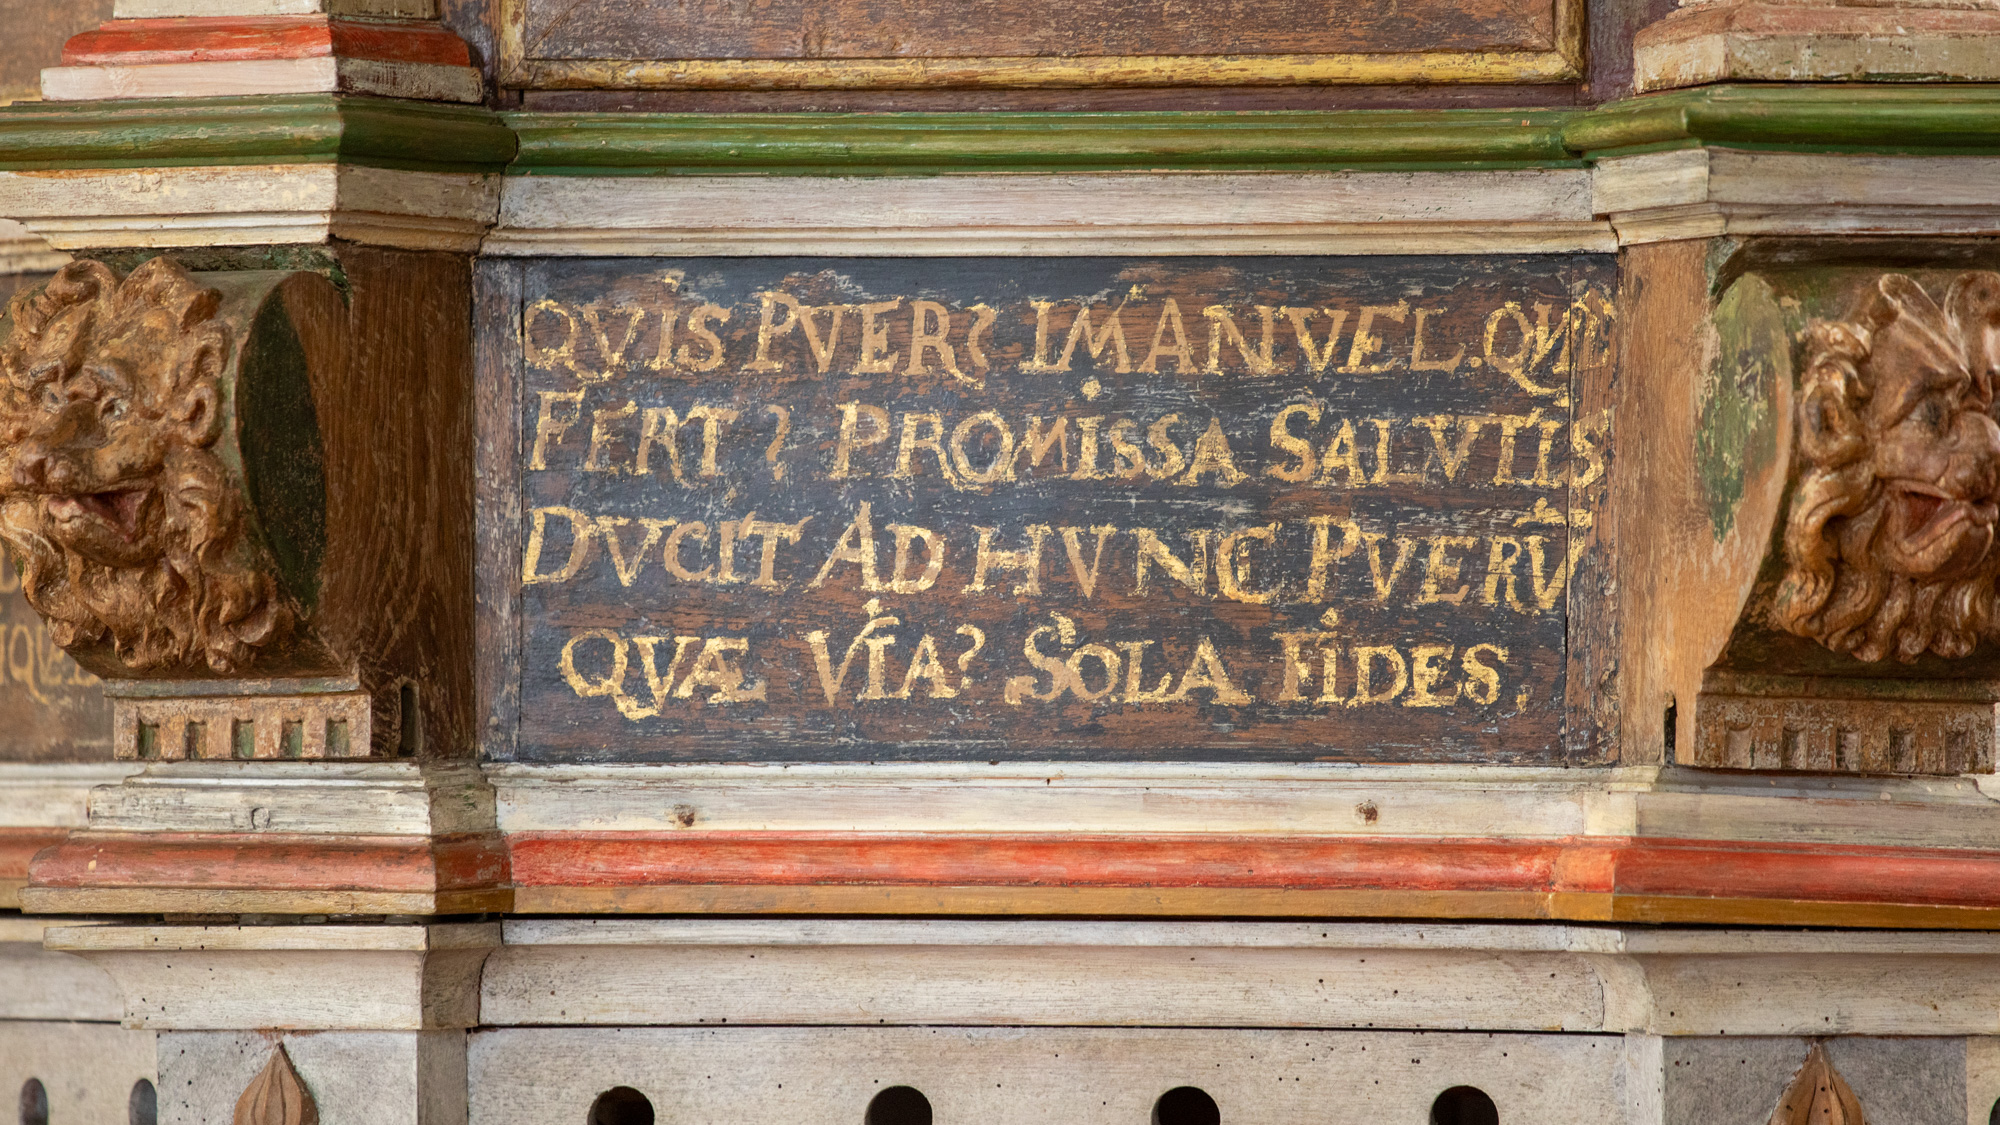 QVIS PVER? IMANVEL. QVID
FERT? PROMISSA SALVTIS
DVCIT AD HVNC PVERṼ
QVÆ VIA? SOLA FIDES.